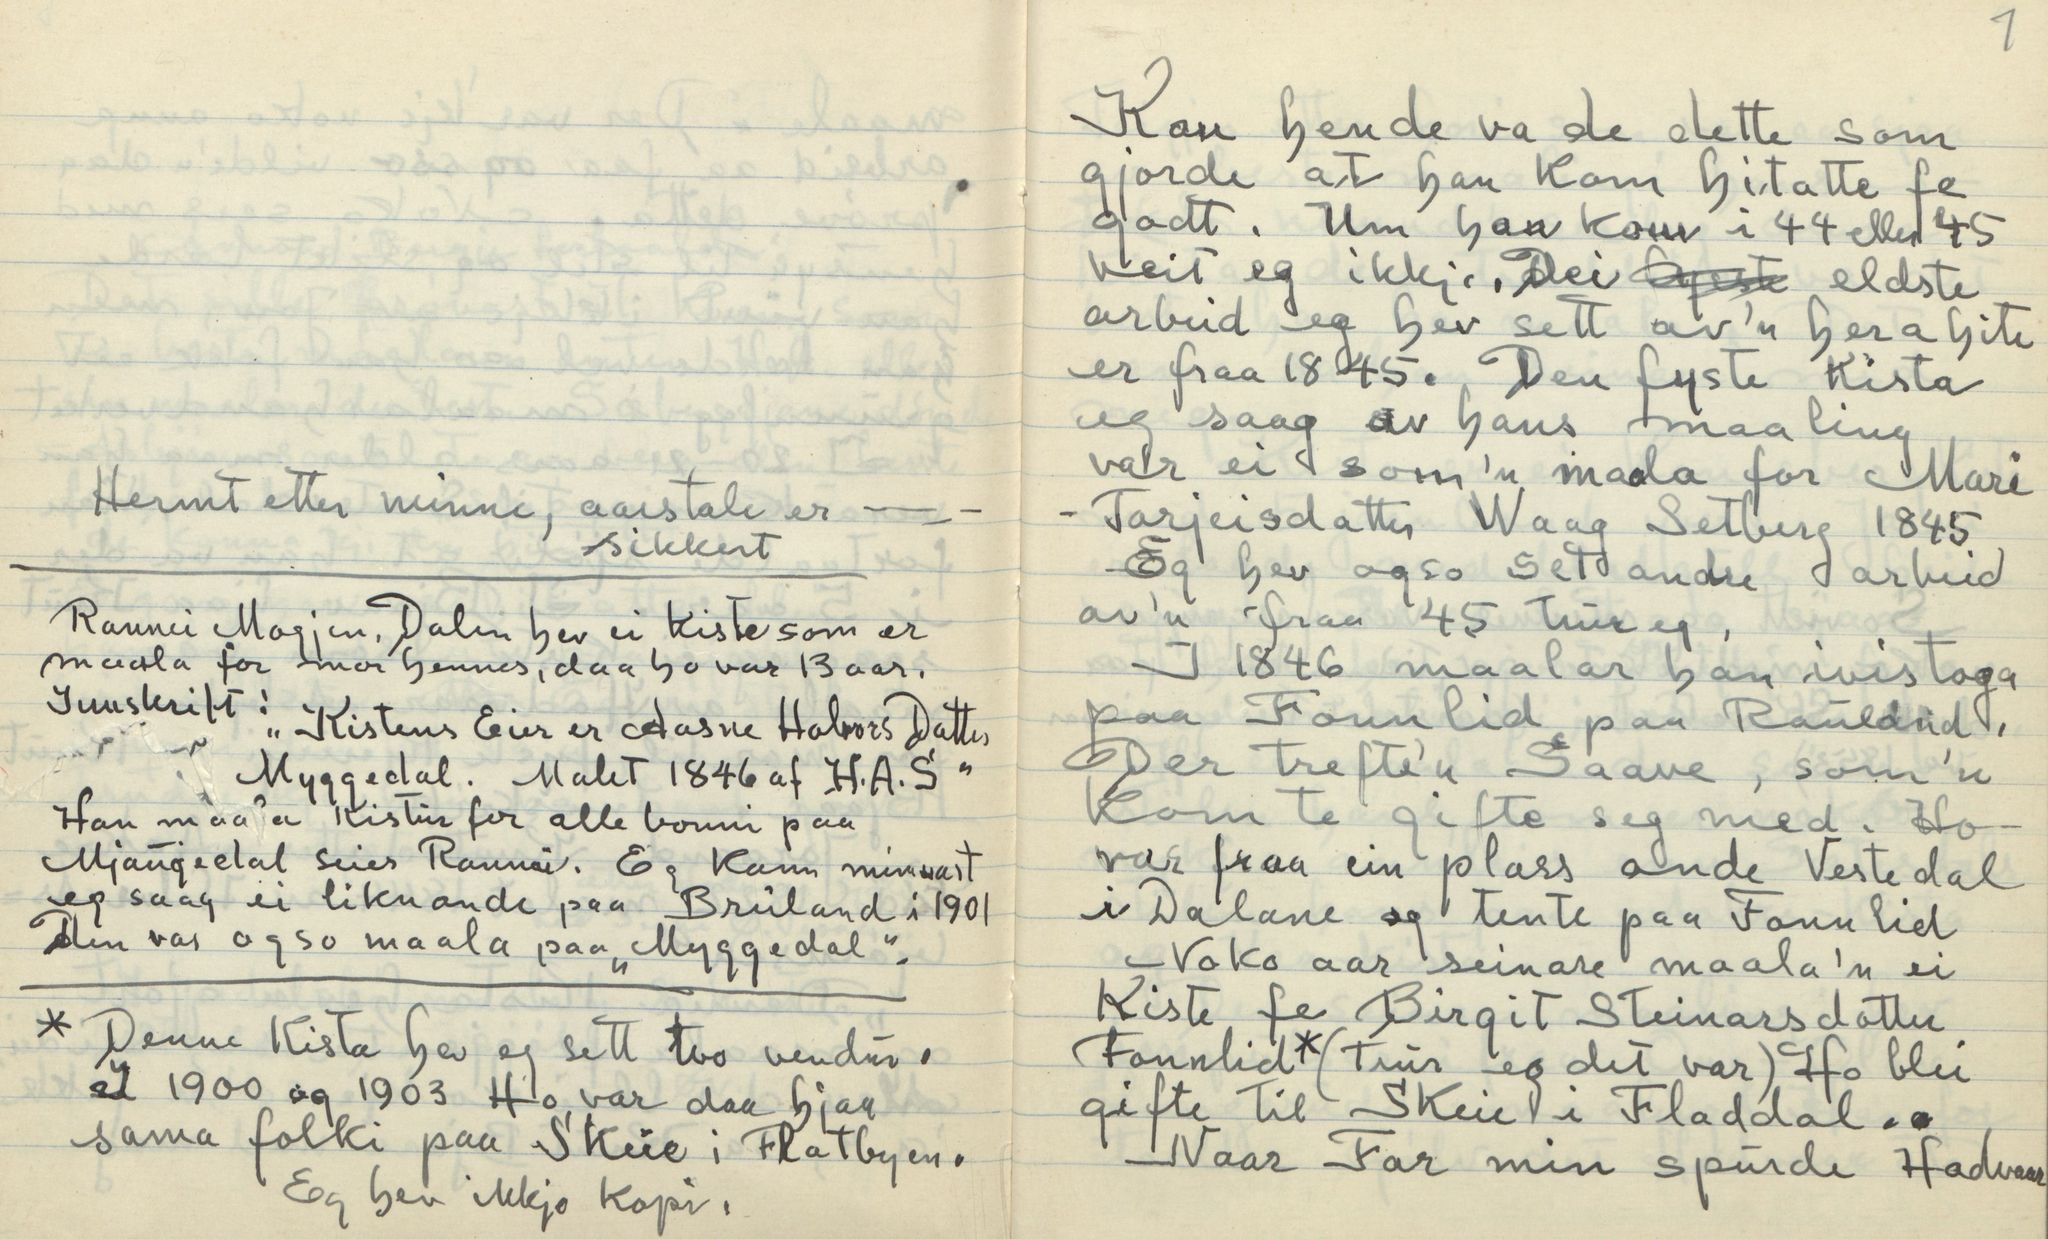 Hermt etter minne, aarstale er — — -
sikkert
Rannei Mogjen, Dalen hev ei kiste som er
maala for mor hennes, daa ho var 13 aar.
Innskrift:
„Kistens Eier er Aasne Halvors Datter
Myggedal. Malet 1846 af H.A.S“
Han maala kistur for alle bonni paa
Mjaugedal seier Rannei. Eg kann minnast
eg saag ei liknande paa Bruland i 1901
Den var ogso maala paa „Myggedal“.
* Denne kista hev eg sett tvo vendur.
I 1900 og 1903 Ho var daa hjaa
sama folki paa Skeie i Flatbyen.
Eg hev ikkjo kopi.
1
Kan hende va de dette som
gjorde at han kom hitatte fe
godt. Um han kom i 44 eller 45
veit eg ikkje. Dei fyste eldste
arbeid eg hev sett av'n her a hite
er fraa 1845. Den fyste kista
eg saag av hans maaling
va'r ei som'n maala for Mari
- Tarjeisdatter Waag Setberg 1845
Eg hev ogso set andre arbeid
av'n fraa 45 trur eg.
I 1846 maalar han ivistoga
paa Fonnlid paa Rauland.
Der trefte'n Saave, som'n
kom te gifte seg med. Ho
var fraa ein plass onde Vestedal
i Dalane og tente paa Fonnlid
Noko aar seinare maala'n ei
kiste fe Birgit Steinarsdotter
Fonnlid* (trur eg det var) Ho blei
gifte til Skeie i Fladdal..
Naar Far min spurde Hadvaar